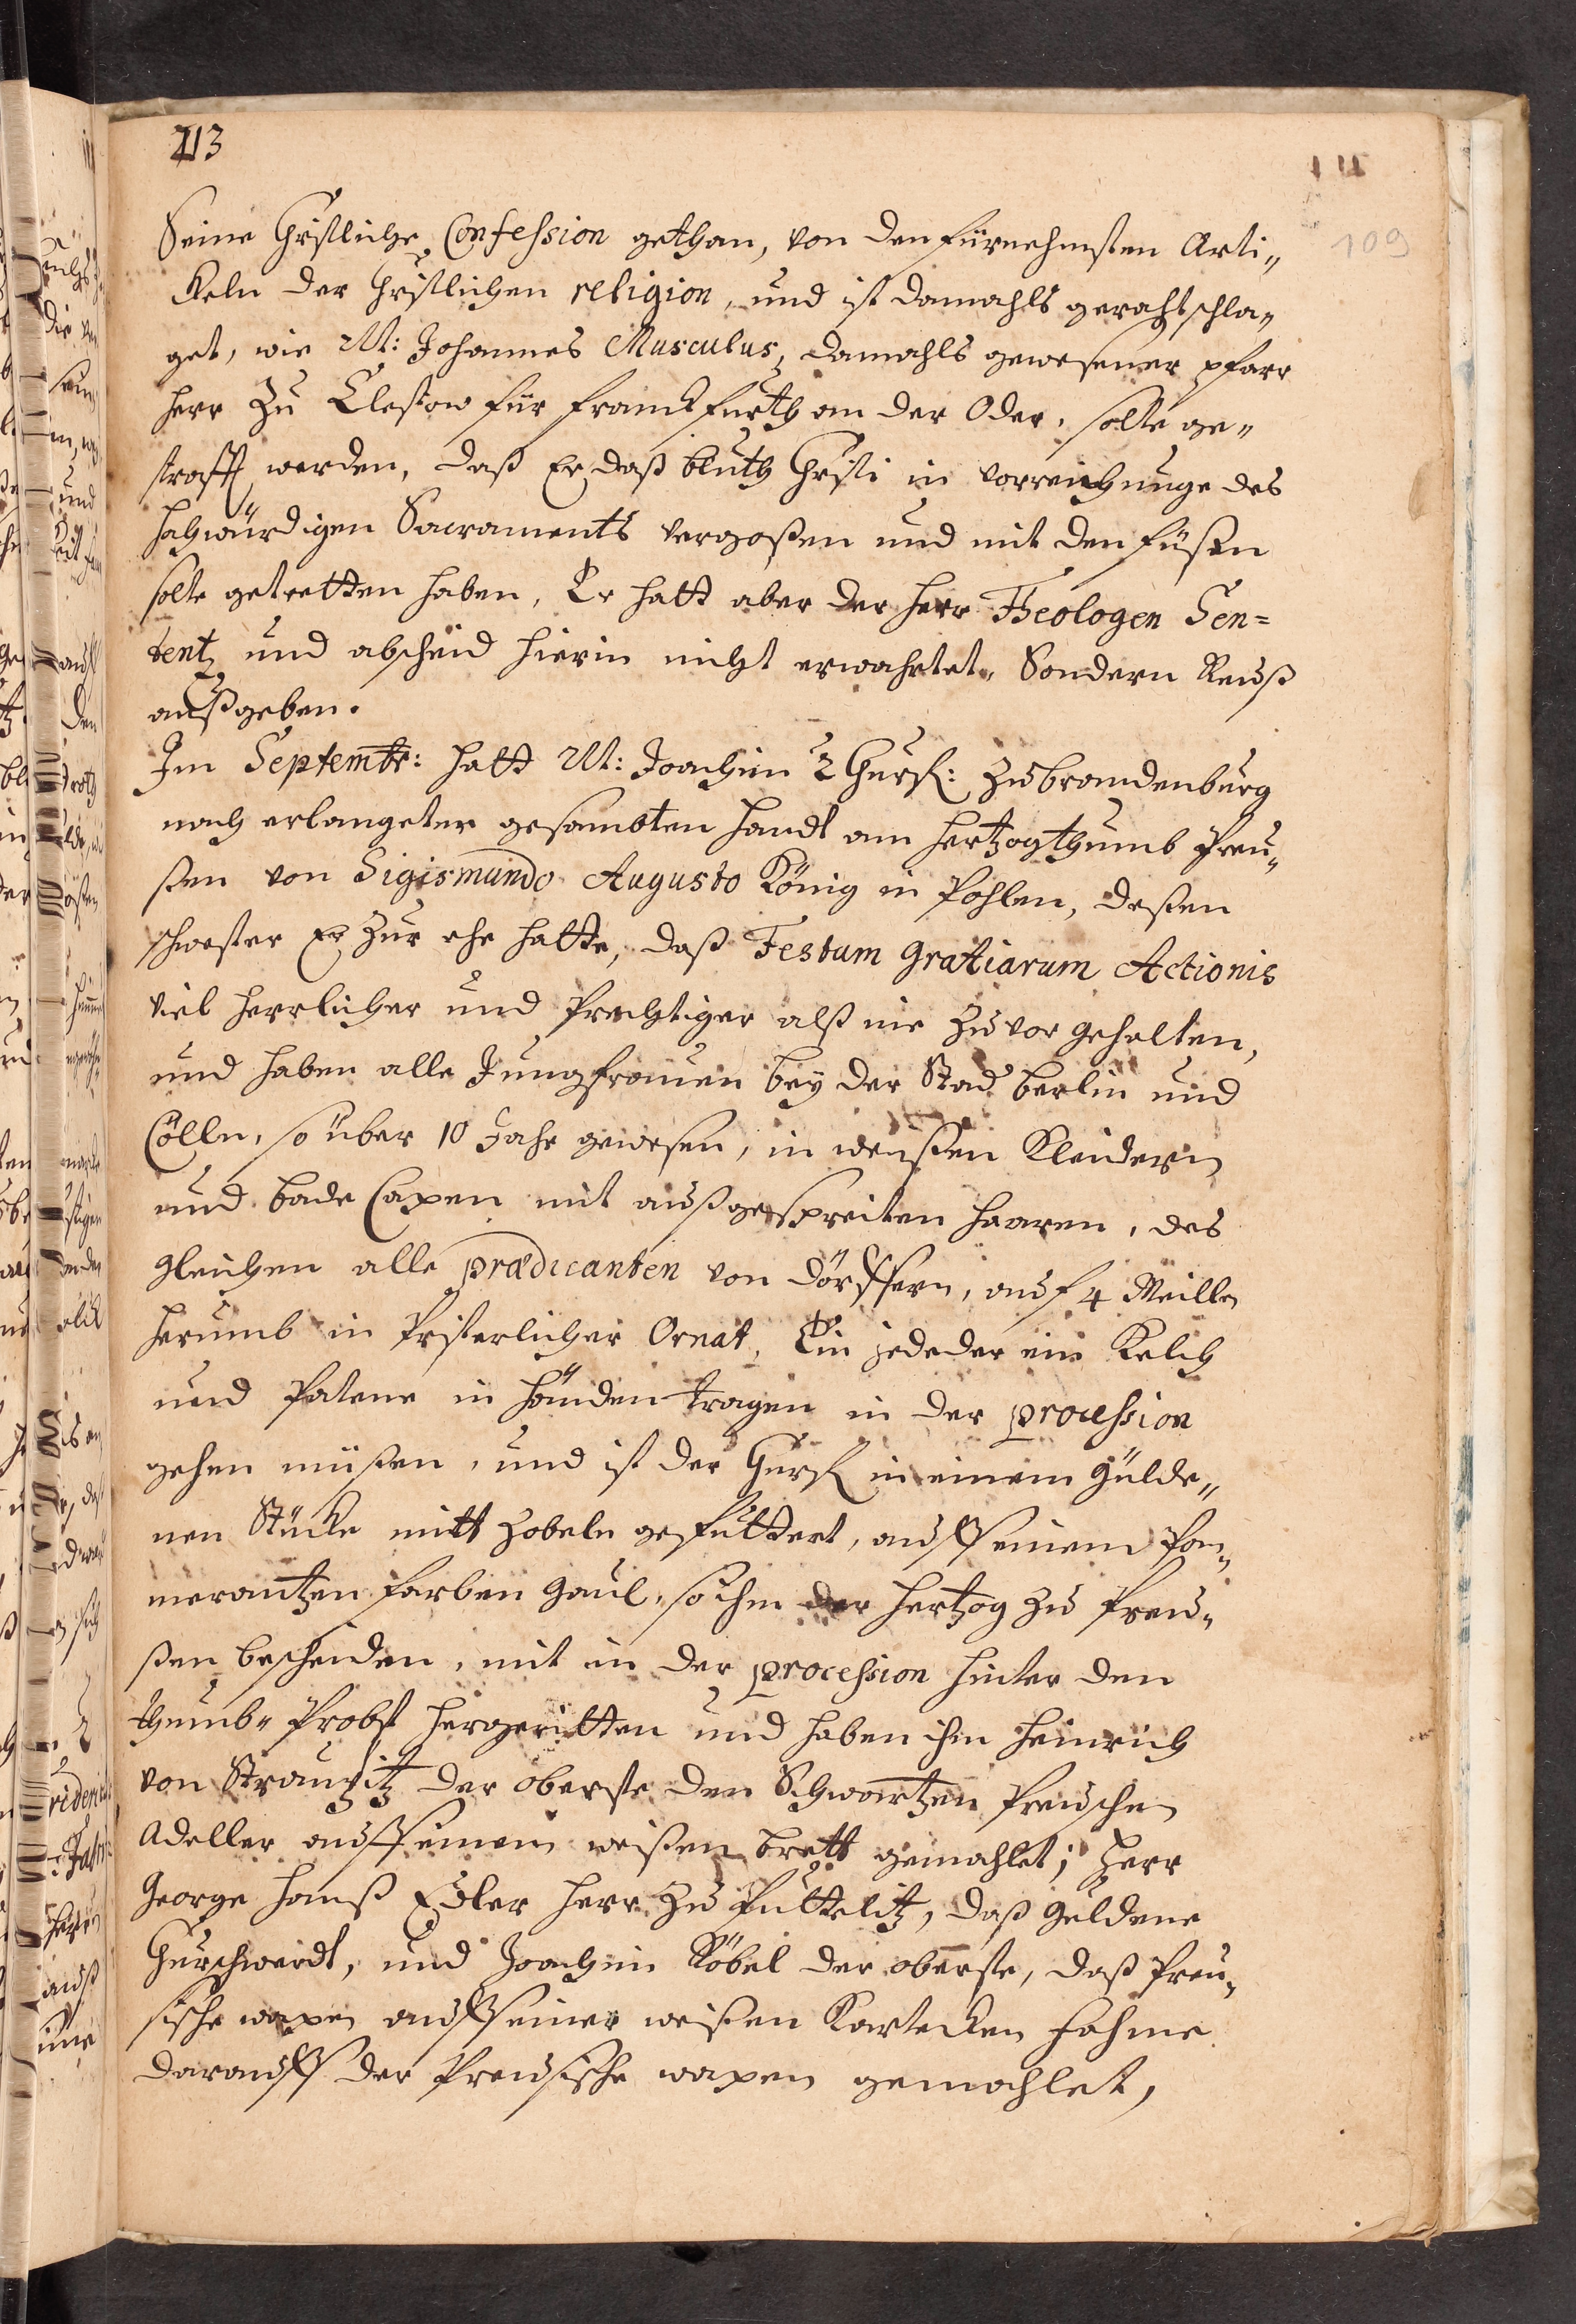 213
109
Seine Christliche Confession gethan, von den fürnehmsten Arti„
ckeln der Christlichen religion, und ist damahls gerahtschla„
get, wie M: Johannes Musculus, damahls gewesener pfarr
herr zu Clestow für franckfurth an der Oder, solte ge„
strafft werden, daß Er daß bluth Christi in vorreichunge des
hochwürdigen Sacraments vergoßen und mit den füßen
solte getretten haben, Er hatt aber der herr Theologen Sen=
tentz und abscheid hierin nicht erwahrtet, Sondern Reuß
außgeben.
Im Septembr: hatt M: Joachim 2 Churf: zu brandenburg
nach erlangeter gesambten handt am hertzogthumb Preu„
ßen von Sigismundo Augusto König in Pohlen, deßen
schwester Er zur ehe hatte, daß Festum Gratiarum Actionis
viel herrlicher und Prechtiger alß nie zuvor gehalten,
und haben alle Jungfrauen bey der Stad berlin und
Cölln, so über 10 Jahr gewesen, in weißen Kleidern
und bade Capen mit außgespreiten haaren, des
gleichen alle prædicanten von dörffern, auf 4 Meillen
herumb in Pristerlicher Ornat, Ein jededer ein Kelch
und Patene in händen tragen in der procession
gehen müßen, und ist der Churf in einem Gülde„
nen Stücke mitt zobeln gefüttert, auff einem Pom„
merantzen farben Gaul, so ihm der hertzog zu Preu„
ßen bescheiden, mit in der procession hinter den
thumb„ Probst hergeritten und haben ihm heinrich
von Strantzitz der oberste den Schwartzen Preuschen
Adeller auff einem weißen brett gemahlet; Herr
George hanß Edler herr zu Puttelitz, daß Güldene
Churschwerdt, und Joachim Röbel der oberste, daß Preu„
sische wapen auff einer weißen Kartecken fahme
darauff der Preusische wapen gemahlet,